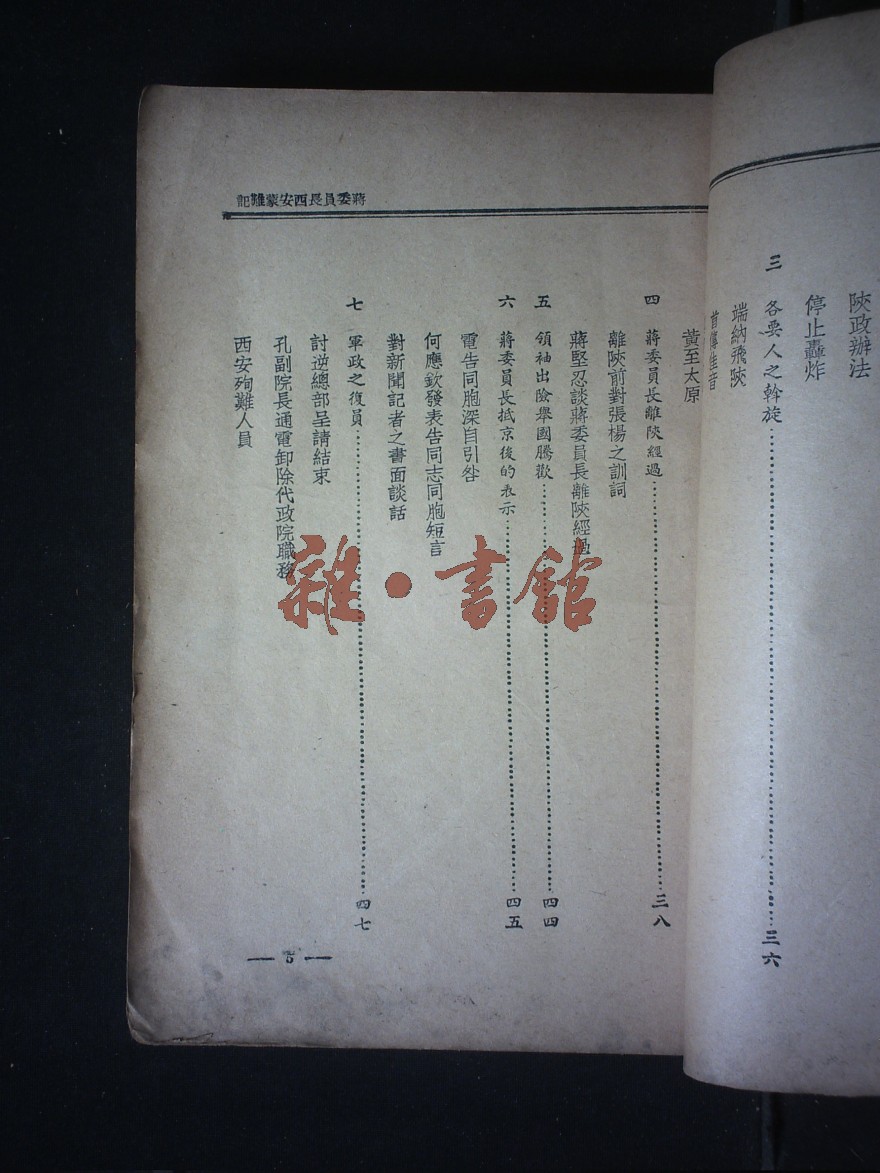 陝政辦法
停止轟炸
三 各要人之斡旋…三六
端納飛陝
首傳佳音
黃至太原
蔣委員長西安蒙難記
四 蔣委員長離陝經過…三八
離陝前對張楊之訓詞
蔣堅忍談蔣委員長離陝經過
五 領袖出險舉國騰歡…四四
六 蔣委員長抵京後的表示…四五
電告同胞深自引咎
何應欽發表告同志同胞短言
對新聞記者之書面談話
七 軍政之復員…四七
討逆總部呈請結束
孔副院長通電卸除代政院職務
西安殉難人員
— 5 —
雜·書館